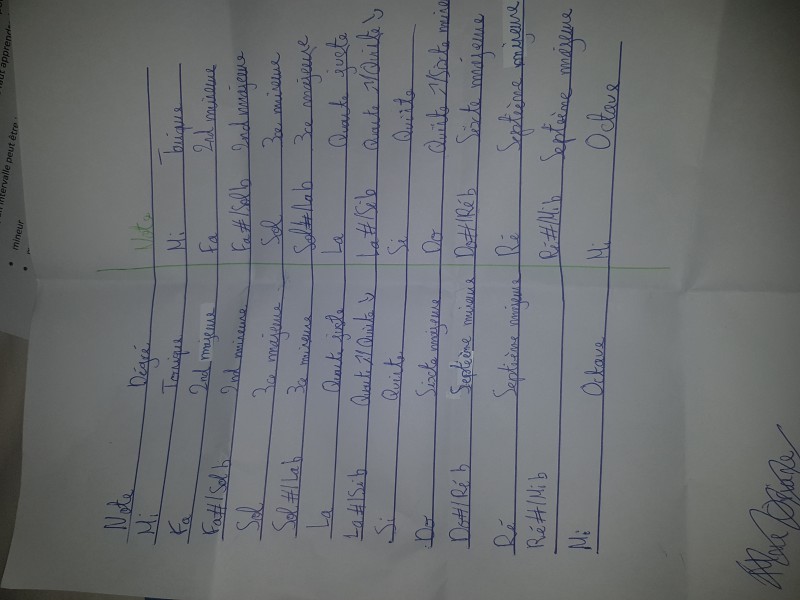 Note Dégré Note
Mi Tonique Mi Tonique
Fa 2nd majeure Fa 2nd mineure
Fa#/Solb 2nd mineure Fa#/Solb 2nd majeure
Sol 3ce majeure Sol 3ce mineure
Sol#/Lab 3ce mineure Sol#/Lab 3ce majeure
La Quarte juste La Quarte juste
La#/Sib Quart ↗/Quinte ↘ La#/Sib Quarte ↗/Quinte ↘
Si Quinte Si Quinte
Do Sixte majeure Do Quinte ↗/Sixte mine
Do#/Ré b Septième mineure Do#/Ré b Sixte majeure
Ré Septième majeure Ré Septième mineure
Ré#/Mib Ré#/Mib Septième majeure
Mi Octave Mi Octave
intervalle peut être :
• mineur